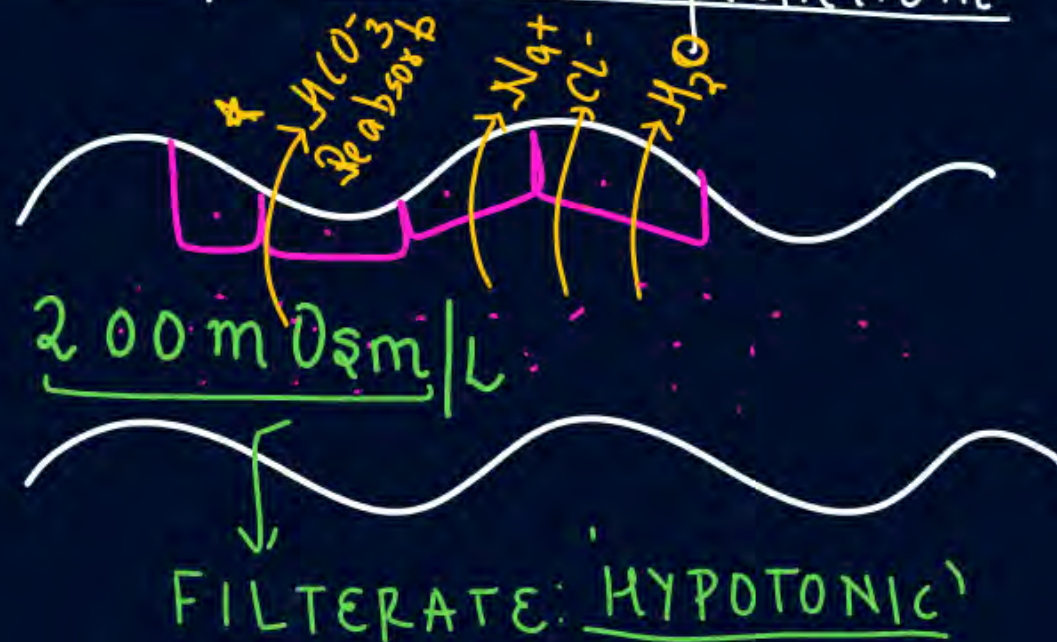 HCO3-
Reabsorb
Na+
Cl-
H2O
200mOsm/L
FILTERATE: 'HYPOTONIC'